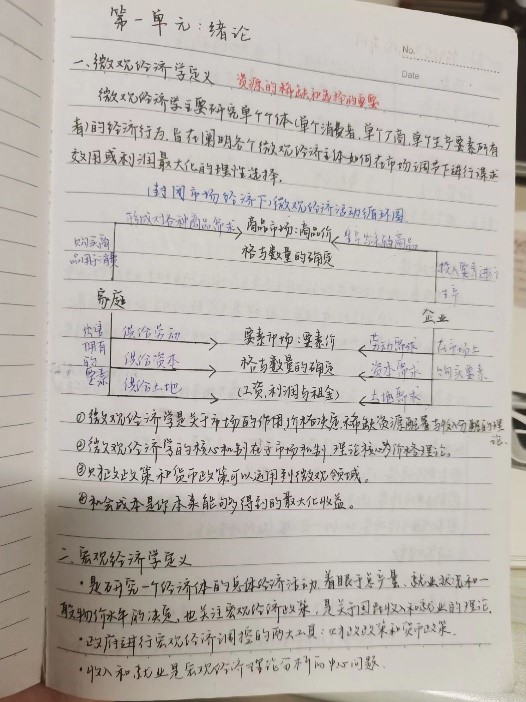 第一单元：绪论
No.
Date
一、微观经济学定义 资源的稀缺和选择的重要
微观经济学主要研究单个个体(单个消费者,单个厂商,单个生产要素所有
者)的经济行为,旨在阐明各个微观经济主体如何在市场调节下进行谋求
效用或利润最大化的理性选择.
(封闭市场经济下)微观经济活动循环图
形成对各种商品需求 商品市场:商品价 生产出来的商品
购买商 格与数量的确定 投入要素进行
品用于消费 生产
家庭 企业
供给 供给劳动 要素市场:要素价 劳动需求 在市场上
拥有 供给资本 格与数量的确定 资本需求 购买要素
的
要素 供给土地 (工资,利润与租金) 土地需求
①微观经济学是关于市场的作用,价格决定,稀缺资源配置与收入分配的理
论.
②微观经济学的核心机制在于市场机制,理论核心为价格理论。
③财政政策和货币政策可以运用到微观领域。
④机会成本是你本来能够得到的最大化收益。
二、宏观经济学定义
·是研究一个经济体的总体经济活动,着眼于总产量、就业状况和一
般物价水平的决定,也关注宏观经济政策,是关于国民收入和就业的理论.
·政府进行宏观经济调控的两大工具:财政政策和货币政策.
·收入和就业是宏观经济理论分析的中心问题.